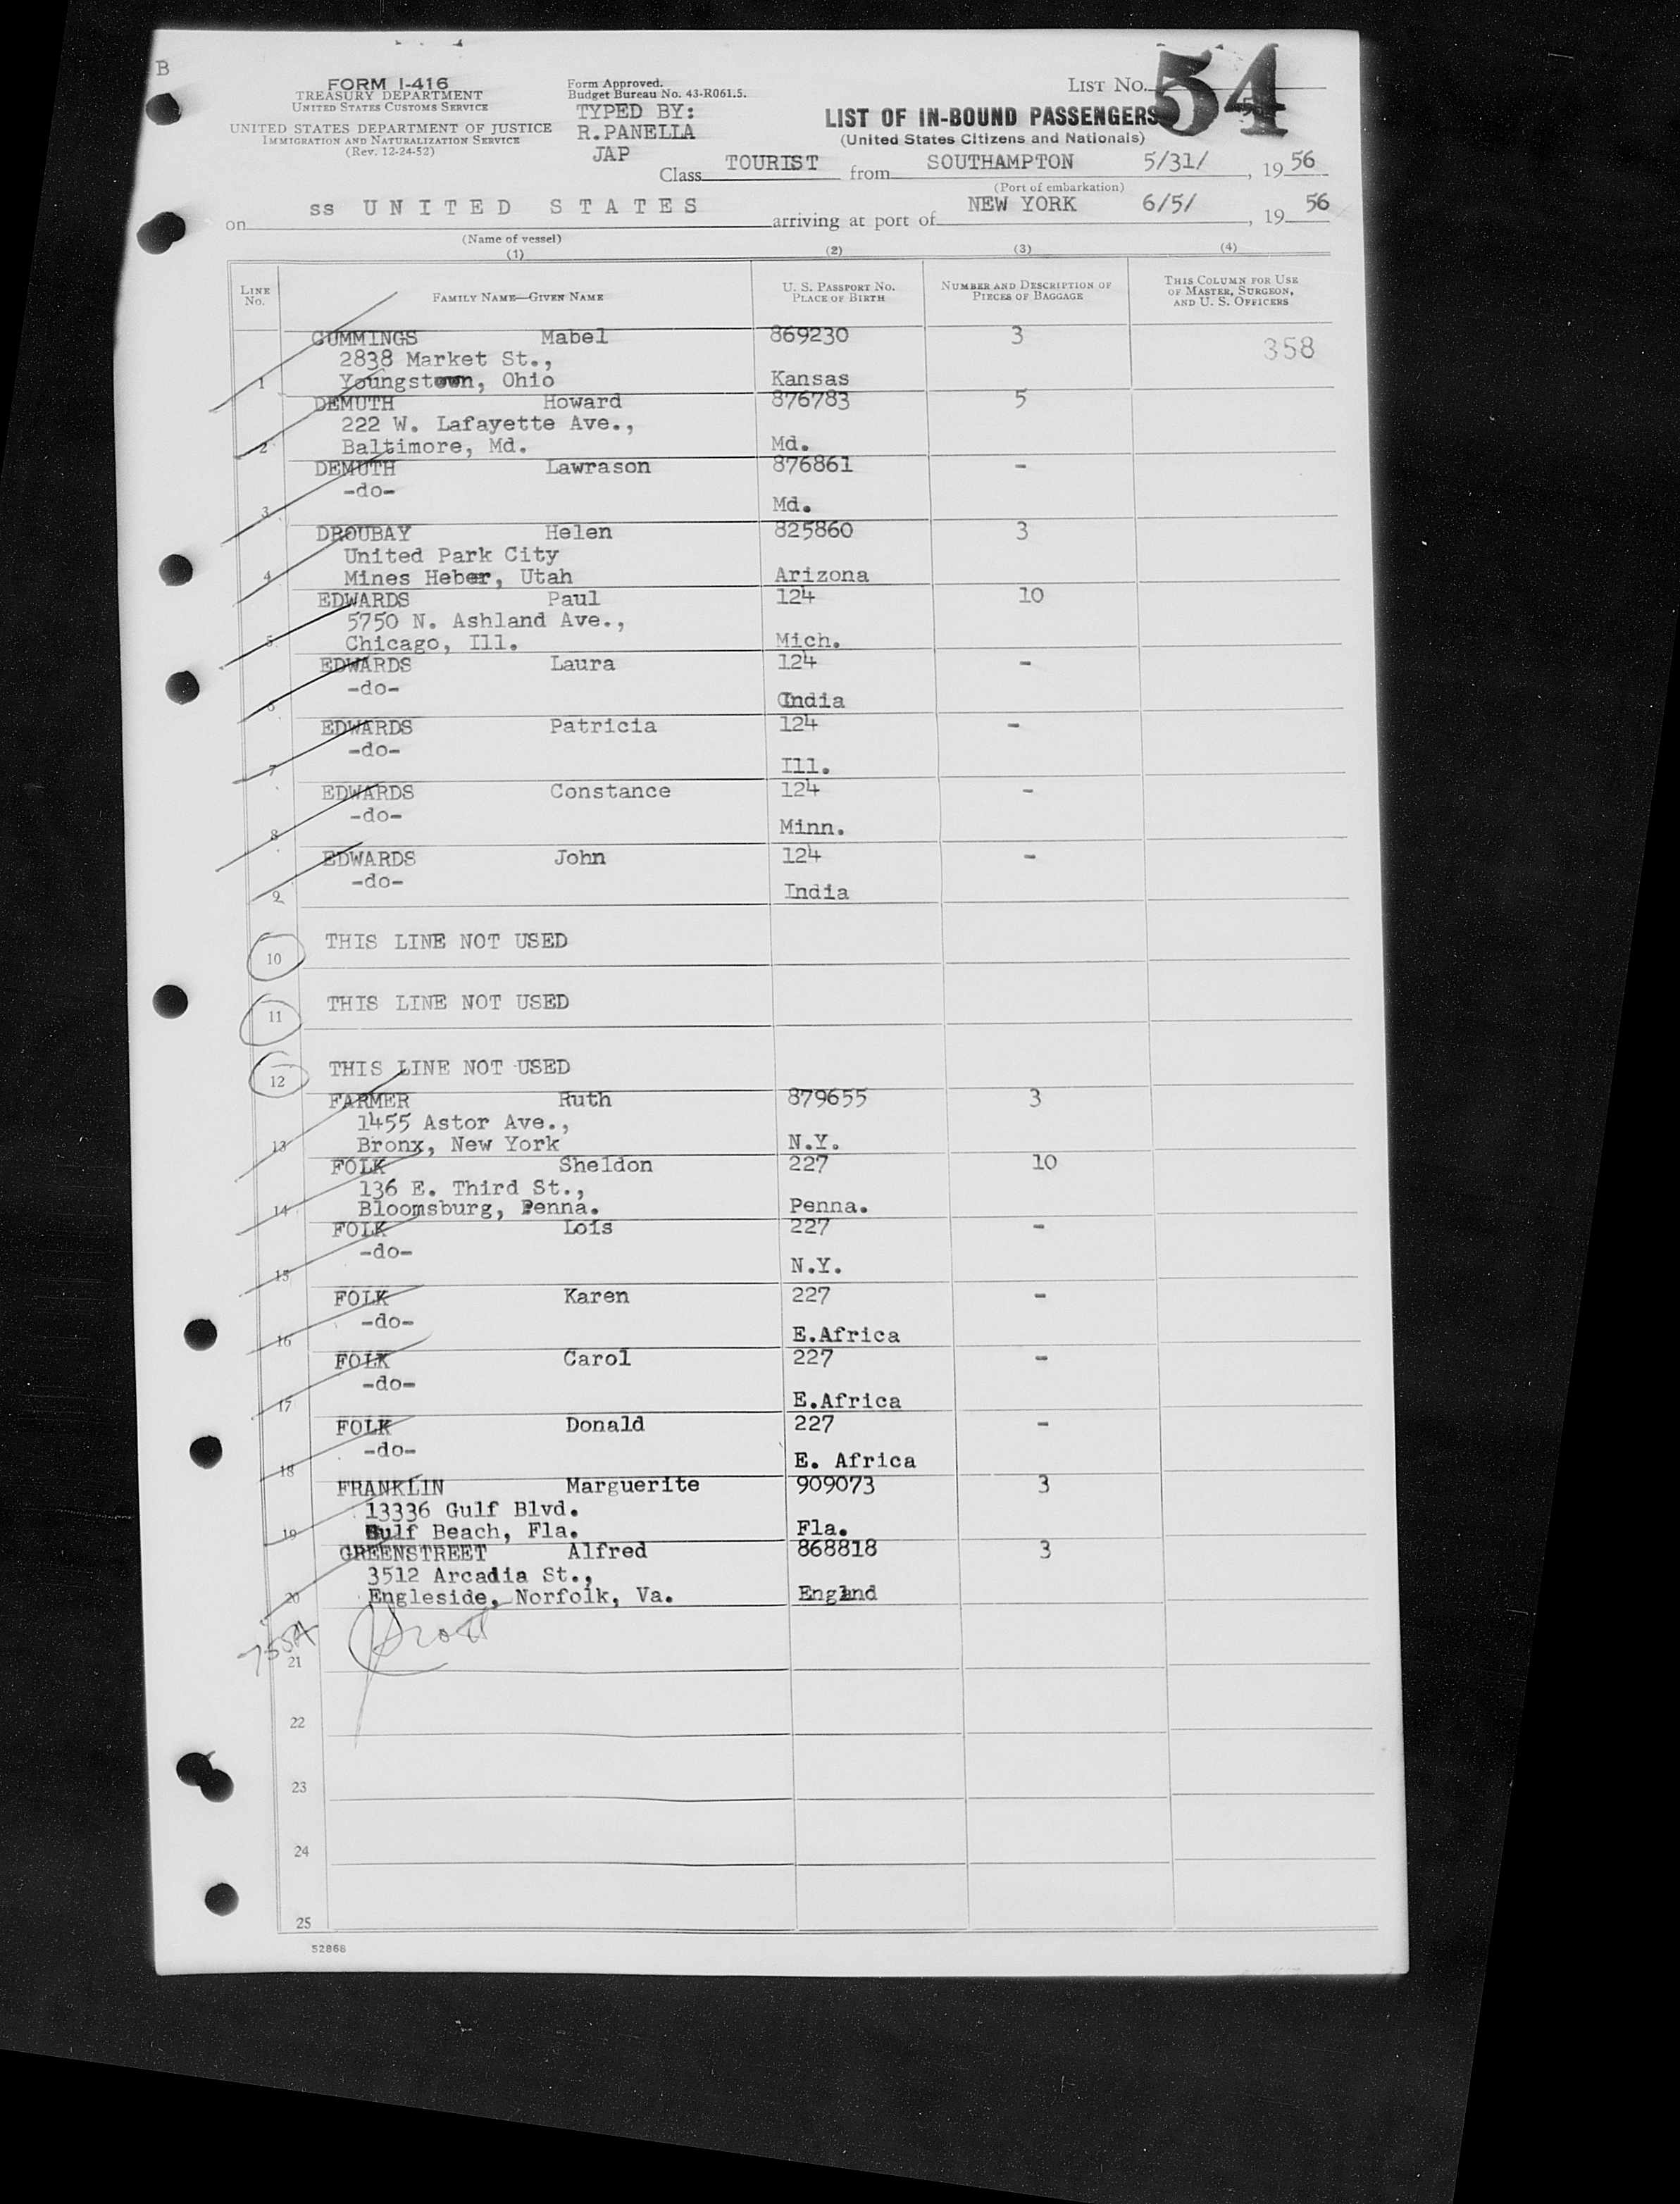 B
FORM I-416
TREASURY DEPARTMENT
UNITED STATES CUSTOMS SERVICE
UNITED STATES DEPARTMENT OF JUSTICE
IMMIGRATION AND NATURALIZATION SERVICE
(Rev. 12-24-52)
Form Approved.
Budget Bureau No. 43-R061.5.
TYPED BY:
R.PANELLA
JAP
LIST No. 54
LIST OF IN-BOUND PASSENGERS
(United States Citizens and Nationals)
Class TOURIST from SOUTHAMPTON 5/31/, 1956
(Port of embarkation)
on ss UNITED STATES arriving at port of NEW YORK 6/5/, 1956
(Name of vessel)
(1) (2) (3) (4)
LINE No. FAMILY NAME—GIVEN NAME U. S. PASSPORT No. PLACE OF BIRTH NUMBER AND DESCRIPTION OF PIECES OF BAGGAGE THIS COLUMN FOR USE OF MASTER, SURGEON, AND U. S. OFFICERS
CUMMINGS Mabel 869230 3 358
2838 Market St.,
1 Youngstown, Ohio Kansas
DEMUTH Howard 876783 5
222 W. Lafayette Ave.,
2 Baltimore, Md. Md.
DEMUTH Lawrason 876861 -
-do-
3 Md.
DROUBAY Helen 825860 3
United Park City
4 Mines Heber, Utah Arizona
EDWARDS Paul 124 10
5750 N. Ashland Ave.,
5 Chicago, Ill. Mich.
EDWARDS Laura 124 -
-do-
6 India
EDWARDS Patricia 124 -
-do-
7 Ill.
EDWARDS Constance 124 -
-do-
8 Minn.
EDWARDS John 124 -
-do-
9 India
10 THIS LINE NOT USED
11 THIS LINE NOT USED
12 THIS LINE NOT USED
FARMER Ruth 879655 3
1455 Astor Ave.,
13 Bronx, New York N.Y.
FOLK Sheldon 227 10
136 E. Third St.,
14 Bloomsburg, Penna. Penna.
FOLK Lois 227 -
-do-
15 N.Y.
FOLK Karen 227 -
-do-
16 E.Africa
FOLK Carol 227 -
-do-
17 E.Africa
FOLK Donald 227 -
-do-
18 E. Africa
FRANKLIN Marguerite 909073 3
13336 Gulf Blvd.
19 Gulf Beach, Fla. Fla.
GREENSTREET Alfred 868818 3
3512 Arcadia St.,
20 Engleside, Norfolk, Va. England
21
22
23
24
25
52868